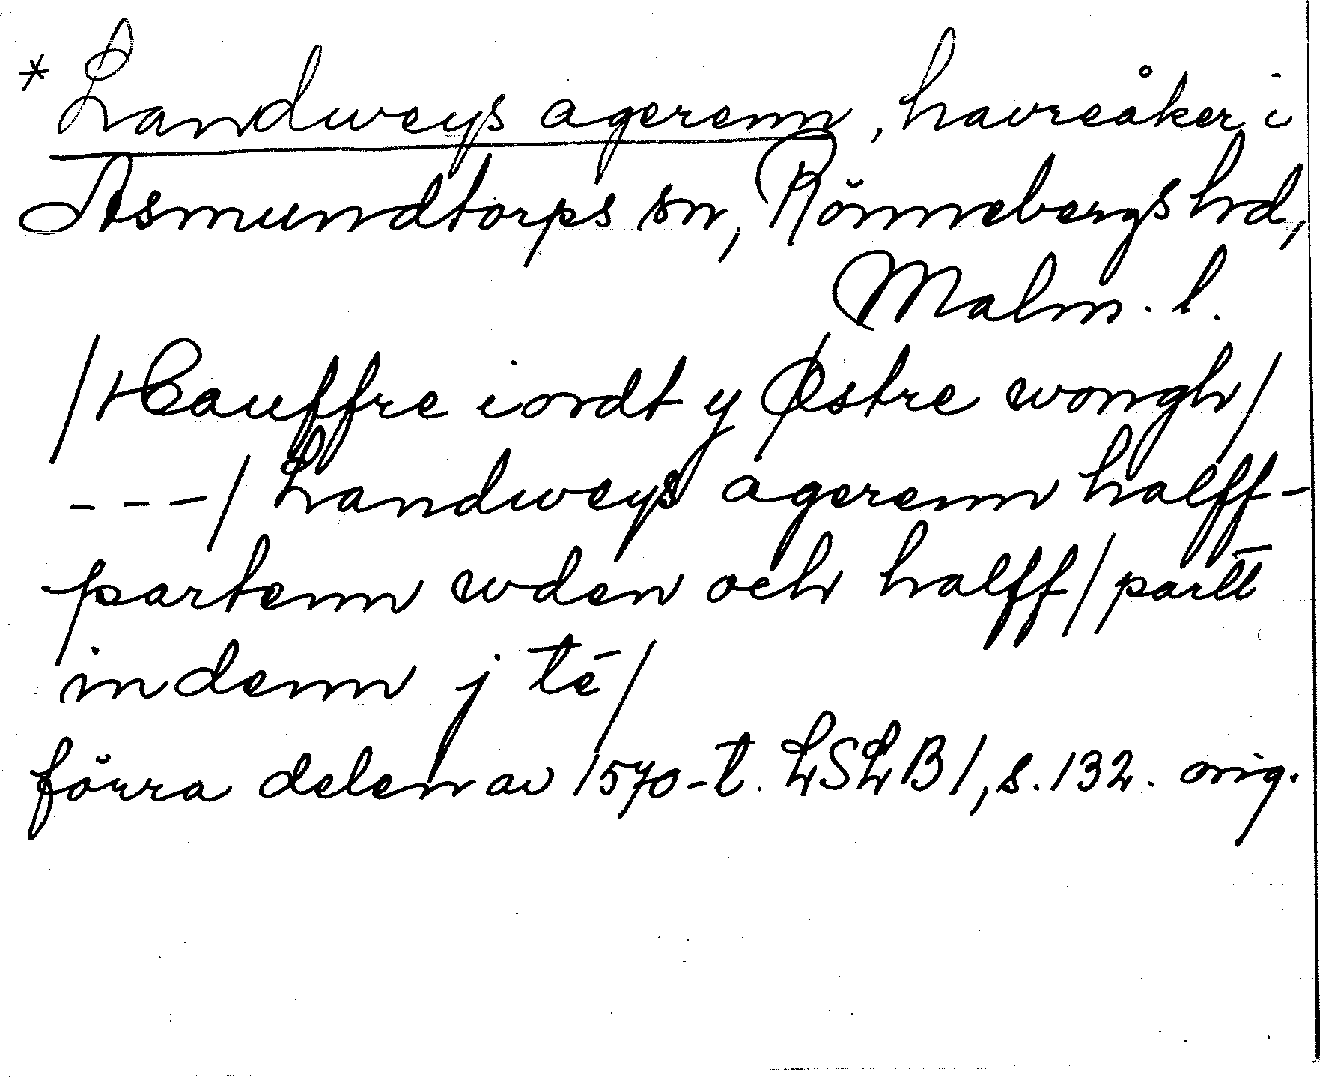 * Landweys agerenn, havreåker i
Asmundtorps sn, Rönnebergs hd,
Malm. l.
/Hauffre iordt y Østre wongh/
---/ Landweys agerenn halff-
partenn wden och halff/partt
indenn j te/
förra delen av 1570-t. LSLB 1, s. 132. orig.